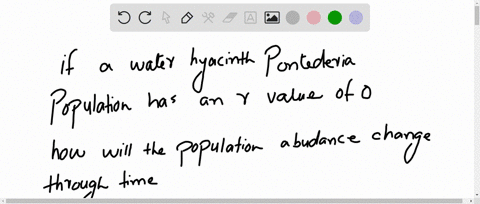 if a water hyacinth Pontederia
Population has an r value of 0
how will the population abudance change
through time